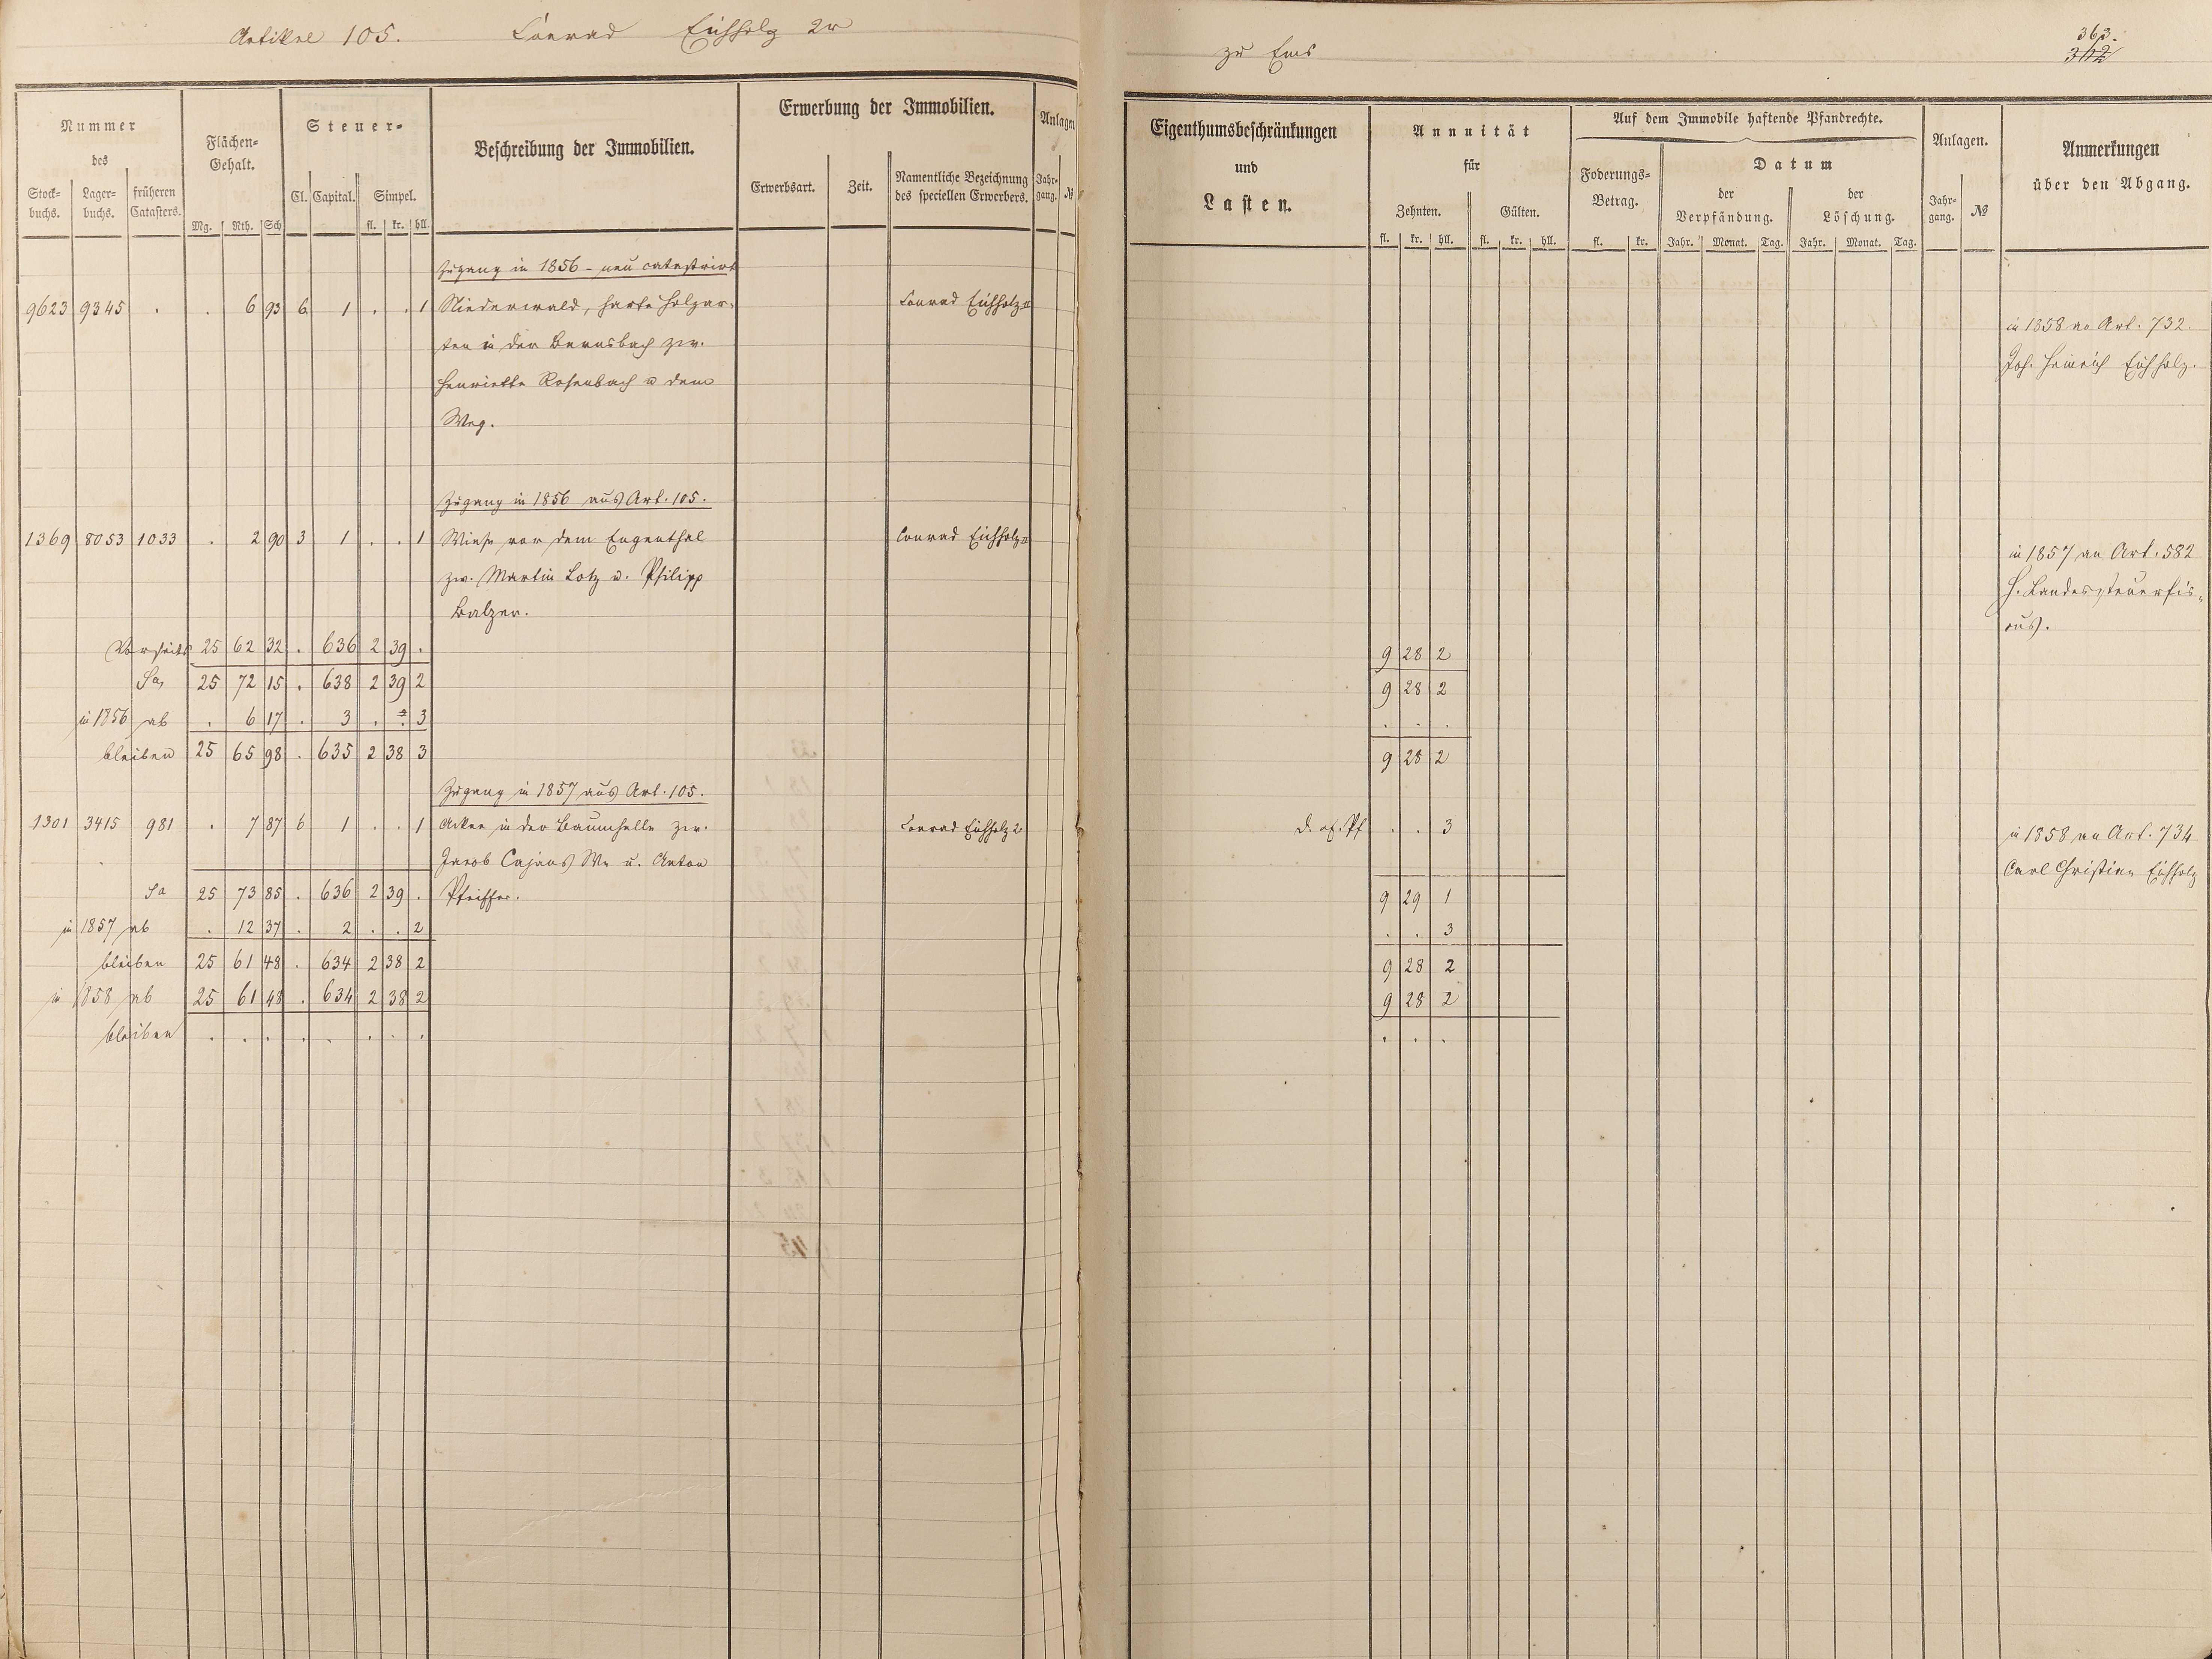 Artikel 105. Conrad Eichholz 2r
zu Ems
363.
362
Nummer
des
Stock-
buchs.
Lager-
buchs.
früheren
Catasters.
Flächen-
Gehalt.
Mg. Rth. Sch
Steuer-
Cl. Capital. Simpel.
fl. kr. hll.
Beschreibung der Immobilien.
Erwerbung der Immobilien.
Erwerbsart. Zeit.
Namentliche Bezeichnung
des speciellen Erwerbers.
Anlagen
Jahr-
gang. №
Eigenthumsbeschränkungen
und
Lasten.
Annuität
für
Zehnten. Gülten.
fl. kr. hll. fl. kr. hll.
Auf dem Immobile haftende Pfandrechte.
Foderungs-
Betrag.
fl. kr.
Datum
der
Verpfändung.
der
Löschung.
Jahr. Monat. Tag. Jahr. Monat. Tag.
Anlagen.
Jahr-
gang. №
Anmerkungen
über den Abgang.
Zugang in 1856 - neu catastrirt
9623 9345 . . 6 93 6 1 . . 1 Niederwald, harte Holzar- Conrad Eichholz 2r
ten in der Bernsbach zw.
Henriette Rosenbach u dem
Weg.
in 1858 an Art. 732.
Joh. Heinrich Eichholz.
Zugang in 1856 aus Art. 105.
1369 8053 1033 . 2 90 3 1 . . 1 Wiese vor dem Engenthal Conrad Eichholz 2r
zw. Martin Lotz u. Philipp
Balzer.
in 1857 an Art. 582
H. Landessteuerfis-
cus.
Vorseits 25 62 32 . 636 2 39 . 9 28 2
Sa, 25 72 15 . 638 2 39 2 9 28 2
in 1856 ab . 6 17 . 3 . . 3 . . .
bleiben 25 65 98 . 635 2 38 3 9 28 2
Zugang in 1857 aus Art. 105.
1301 3415 981 . 7 87 6 1 . . 1 Acker in der Baumhelle zw. Conrad Eichholz 2 D. ... Pf . . 3
Jacob Cajans We u. Anton
in 1858 an Art. 734
Carl Christian Eichholz
Sa 25 73 85 . 636 2 39 . Pfeiffer. 9 29 1
in 1857 ab . 12 37 . 2 . . 2 . . 3
bleiben 25 61 48 . 634 2 38 2 9 28 2
in 1858 ab 25 61 48 . 634 2 38 2 9 28 2
bleiben . . . . . . . . . . .